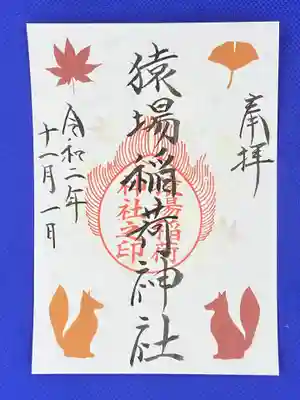 奉拝
猿場稲荷神社
猿場稲荷
神社之印
令和二年
十一月一日